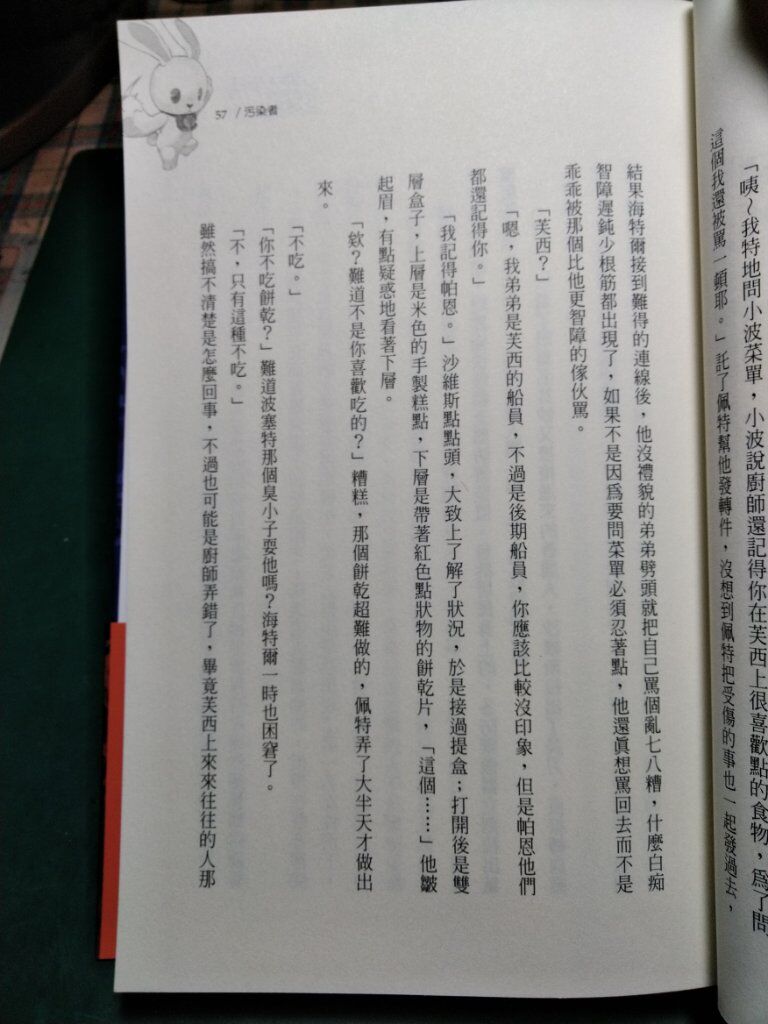 「咦～我特地問小波菜單，小波說廚師還記得你在芙西上很喜歡點的食物，為了問
這個我還被罵一頓耶。」託了佩特幫他發轉件，沒想到佩特把受傷的事也一起發過去，
57 / 污染者
結果海特爾接到難得的連線後，他沒禮貌的弟弟劈頭就把自己罵個亂七八糟，什麼白痴
智障遲鈍少根筋都出現了，如果不是因為要問菜單必須忍著點，他還真想罵回去而不是
乖乖被那個比他更智障的傢伙罵。
「芙西？」
「嗯，我弟弟是芙西的船員，不過是後期船員，你應該比較沒印象，但是帕恩他們
都還記得你。」
「我記得帕恩。」沙維斯點點頭，大致上了解了狀況，於是接過提盒；打開後是雙
層盒子，上層是米色的手製糕點，下層是帶著紅色點狀物的餅乾片，「這個……」他皺
起眉，有點疑惑地看著下層。
「欸？難道不是你喜歡吃的？」糟糕，那個餅乾超難做的，佩特弄了大半天才做出
來。
「不吃。」
「你不吃餅乾？」難道波塞特那個臭小子耍他嗎？海特爾一時也困窘了。
「不，只有這種不吃。」
雖然搞不清楚是怎麼回事，不過也可能是廚師弄錯了，畢竟芙西上來來往往的人那